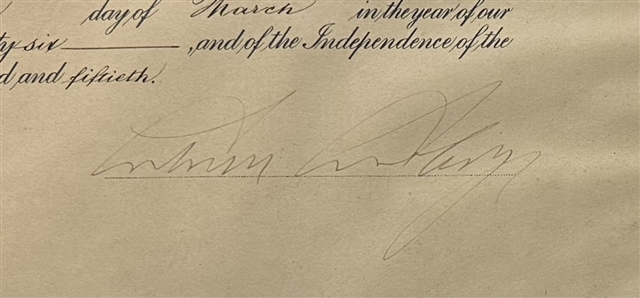 day of March in the year of our
ty six , and of the Independence of the
d and fiftieth.
Calvin Coolidge